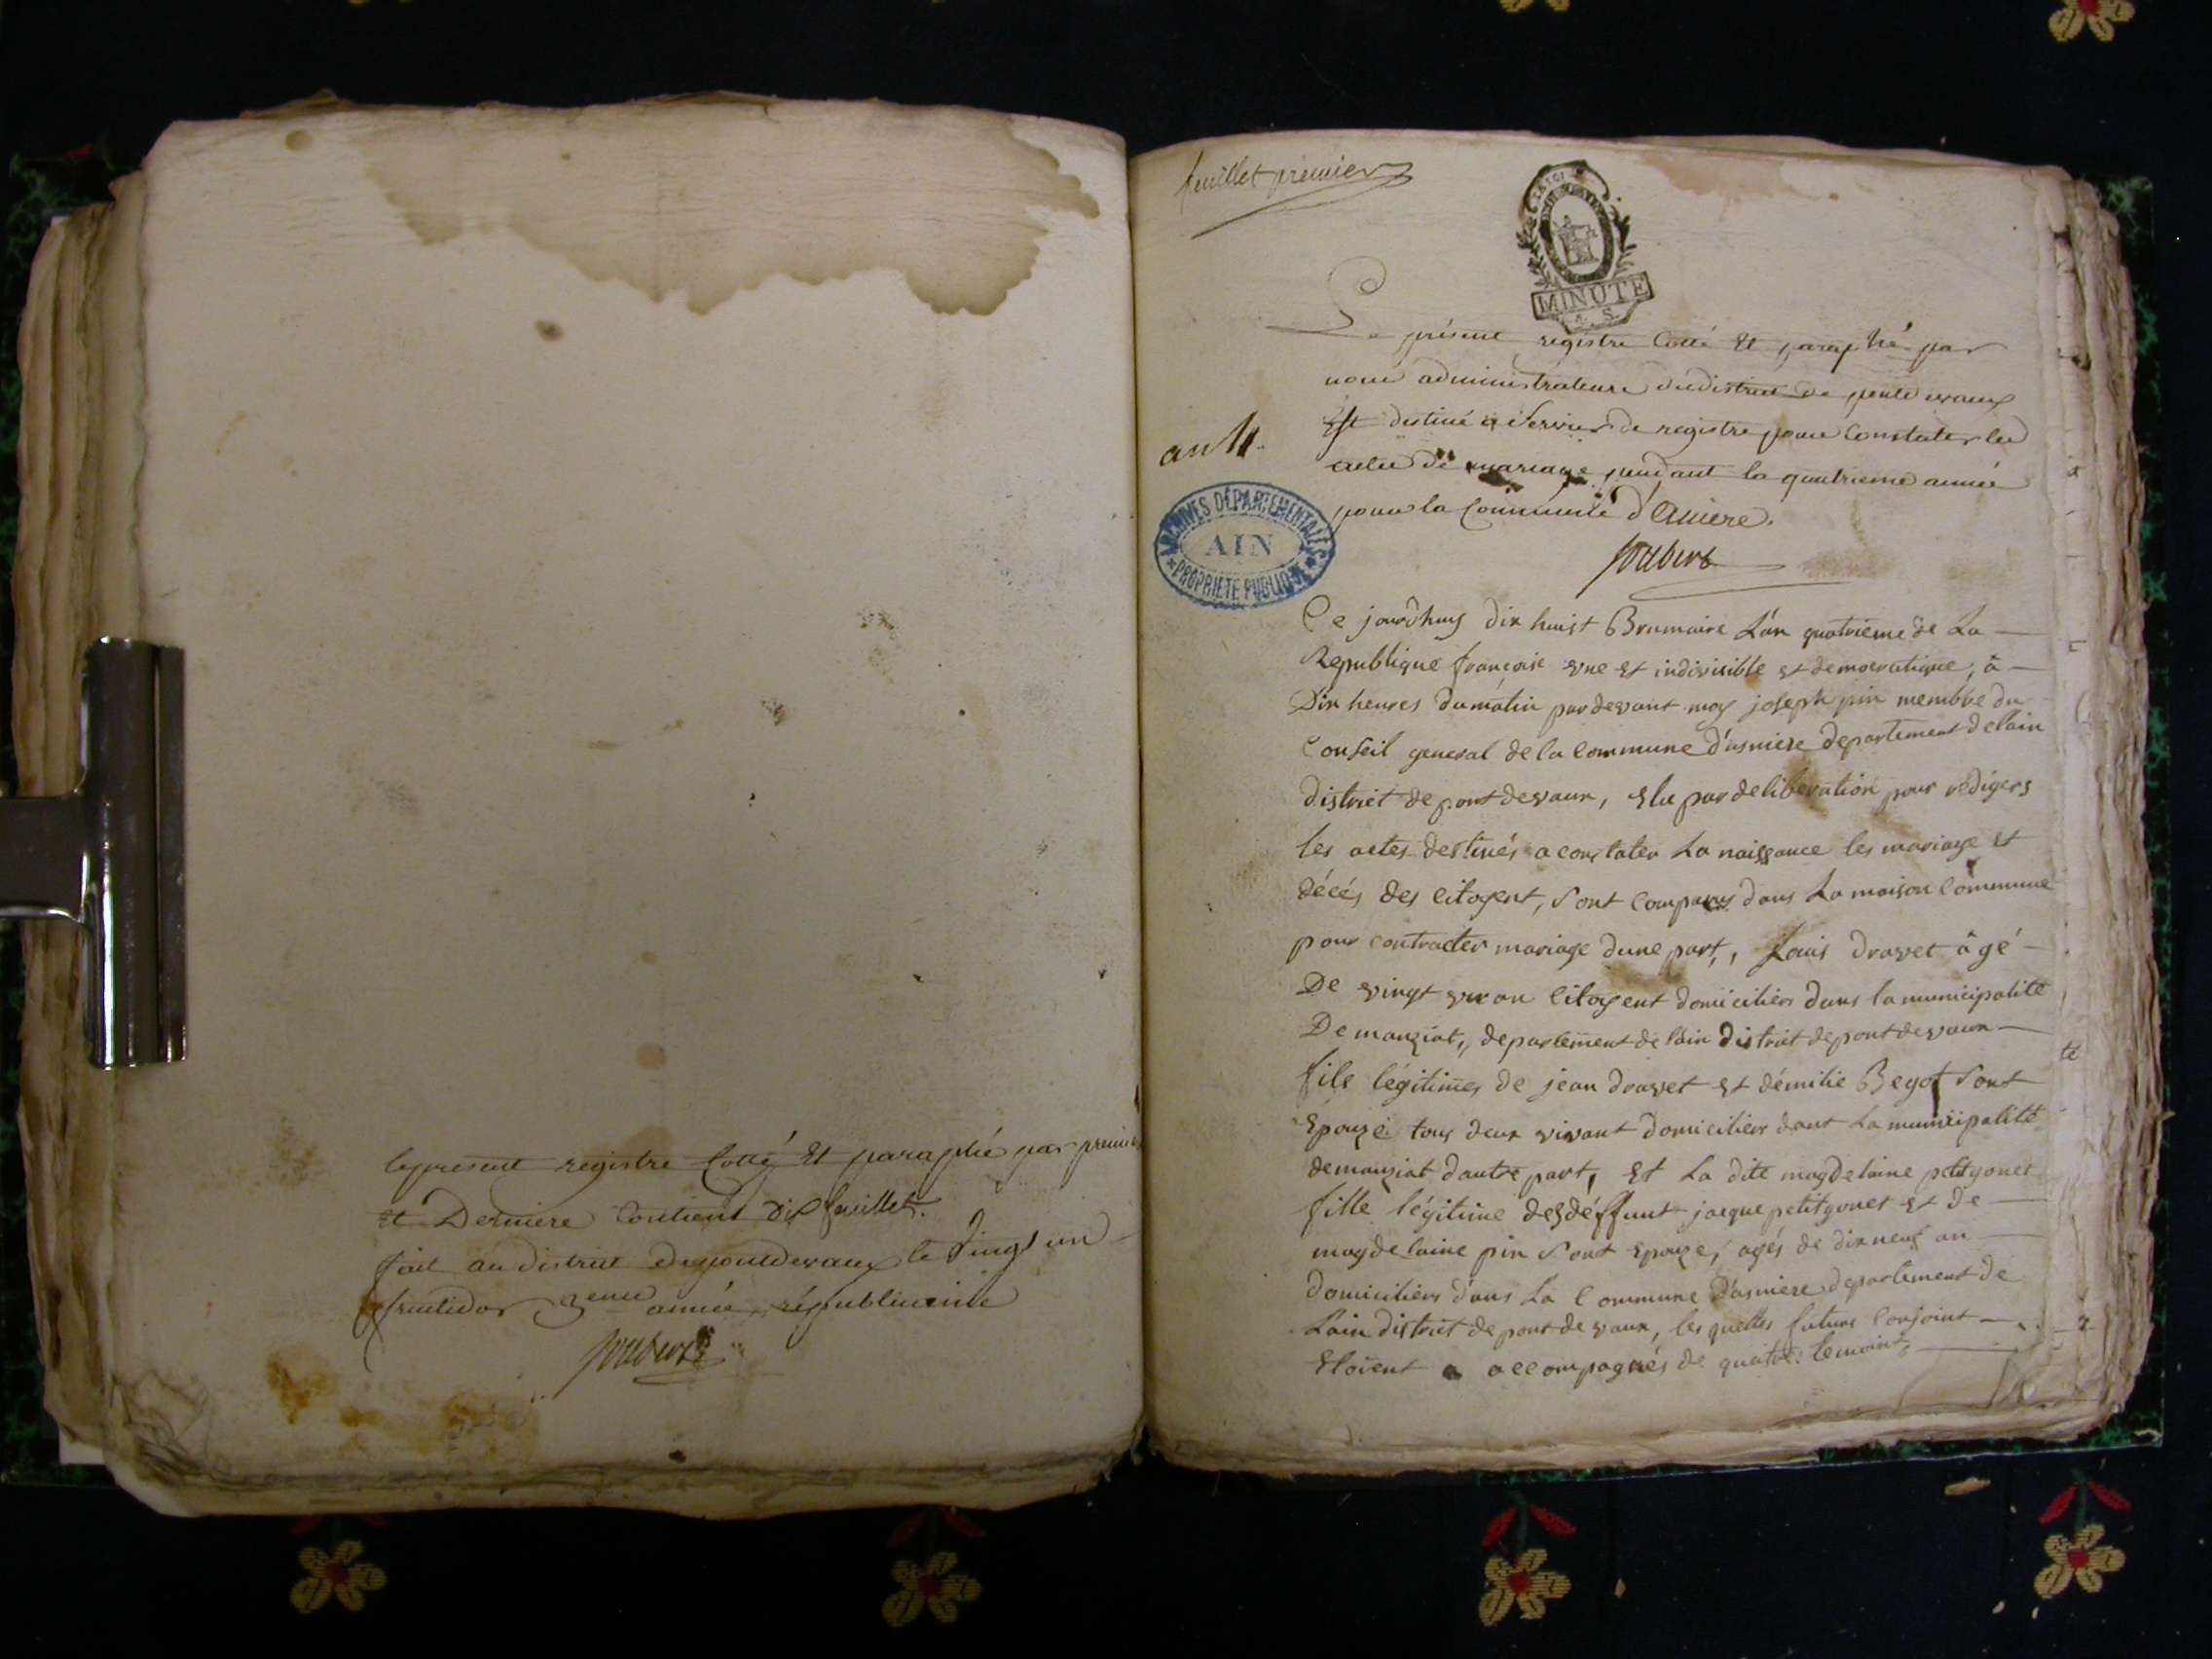 le present registre Cotté Et paraphé par premier
Et Derniere Contient dix feuillet.
fait au District de pontdevaux le Vingt un
fructidor 3eme année républicaine
Joubert
feuillet premier
MINUTE
4. S.
Le présent registre Cotté Et paraphé par
nous administrateurs du district de pontdevaux
Est destiné a Servir de registre pour Constater les
actes de mariage pendant la quatrieme année
pour la Commune d'Aniere.
an 4.
ARCHIVES DÉPARTEMENTALES
AIN
PROPRIÉTÉ PUBLIQUE
Joubert
Ce jourdhuy dix huist Brumaire L'an quatrieme de La
Republique françoise vne Et indivisible Et democratique, à
Dix heures du matin pardevant moy joseph pin membre du
Conseil general de la Commune d'asniere departement de lain
district de pont devaux, Elu par deliberation pour rediger
les actes destinés a constater La naissance les mariage Et
décés des citoyent, sont comparus dans La maison Commune
pour contracter mariage dune part, Louis dravet âgé
De vingt vn an Citoyent domiciliers dans la municipalité
De manziat, departement de lain district de pont devaux
fils légitimes de jean dravet Et démilie Beyot sont
Epouze tous deux vivant domicilier dans La municipalité
de manziat d'autre part, Et La dite magdelaine petitgonet
fille légitime des déffunt jacque petitgonet Et De
magdelaine pin sont Epouze, agés de dix neuf an
domiciliers dans La Commune d'asniere departement de
Lain district de pont de vaux, les quelles futurs Conjoint
Etoient accompagnés de quatre temoint,
té